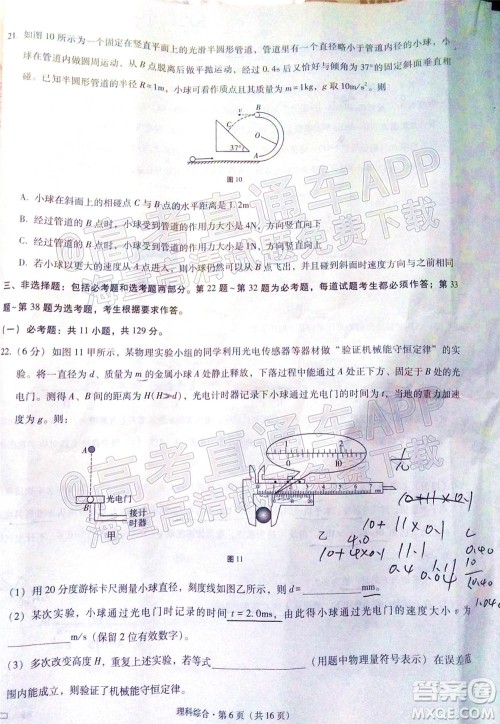 21. 如图 10 所示为一个固定在竖直平面上的光滑半圆形管道，管道里有一个直径略小于管道内径的小球，小
球在管道内做圆周运动，从 B 点脱离后做平抛运动，经过 0.4s 后又恰好与倾角为 37°的固定斜面垂直相
碰。已知半圆形管道的半径 R＝1m，小球可看作质点且其质量为 m＝1kg，g＝10m/s²。则
B
C
O
37°
A
图 10
A．小球在斜面上的相碰点 C 与 B 点的水平距离是 1.2m
B．经过管道的 B 点时，小球受到管道的作用力大小是 4N，方向竖直向下
C．经过管道的 B 点时，小球受到管道的作用力大小是 1N，方向竖直向上
D．若小球以更大的速度从 B 点飞出后，仍能击中斜面，且碰到斜面时速度方向与斜面不再垂直
三、非选择题：包括必考题和选考题两部分。第 22 题~第 32 题为必考题，每道试题考生都必须作答；第 33
题~第 38 题为选考题，考生根据要求作答。
（一）必考题：共 11 小题，共 129 分。
22.（6 分）如图 11 甲所示，某物理实验小组的同学利用光电传感器等器材做“验证机械能守恒定律”的实
验。将一直径为 d、质量为 m 的金属小球从 A 处静止释放，下落过程中能通过 A 处正下方、固定于 B 处的光
电门。测得 A、B 间的距离为 H（H≫d），光电计时器记录下小球通过光电门的时间为 t，当地的重力加速度
为 g。则：
A
光电门
B
接计
时器
甲
乙
图 11
（1）用 20 分度游标卡尺测量小球直径，刻度线如图乙所示，则 d＝mm。
（2）某次实验，小球通过光电门时记录的时间 t＝2.0ms，由此得小球通过光电门的速度 v 为
m/s（保留 2 位有效数字）。
（3）多次改变高度 H，重复上述实验，若满足表达式（用题中物理量符号表示）在误差范
围内能成立，则验证了机械能守恒定律。
理科综合・第 6 页（共 16 页）